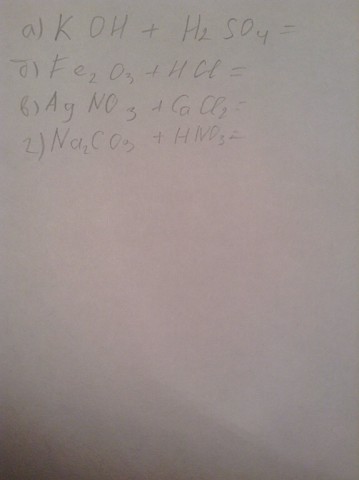 а) K OH + H₂ SO₄ =
б) Fe₂ O₃ + HCl =
в) Ag NO₃ + CaCl₂ =
г) Na₂CO₃ + HNO₃ =